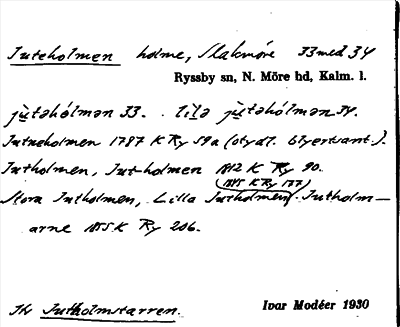 Juteholmen holme, Slakmöre 33 med 34
Ryssby sn, N. Möre hd, Kalm. l.
jùtəhólmən 33. lilə jùtəhólmən 34.
Jutneholmen 1787 K Ry 59a (otydl. blyertsant.).
Jutholmen, Jut-holmen 1812 K Ry 90.
(1845 K Ry 177)
Stora Jutholmen, Lilla Jutholmen. Jutholm-
arne 1855 K Ry 206.
Jfr Jutholmstarren.
Ivar Modéer 1930